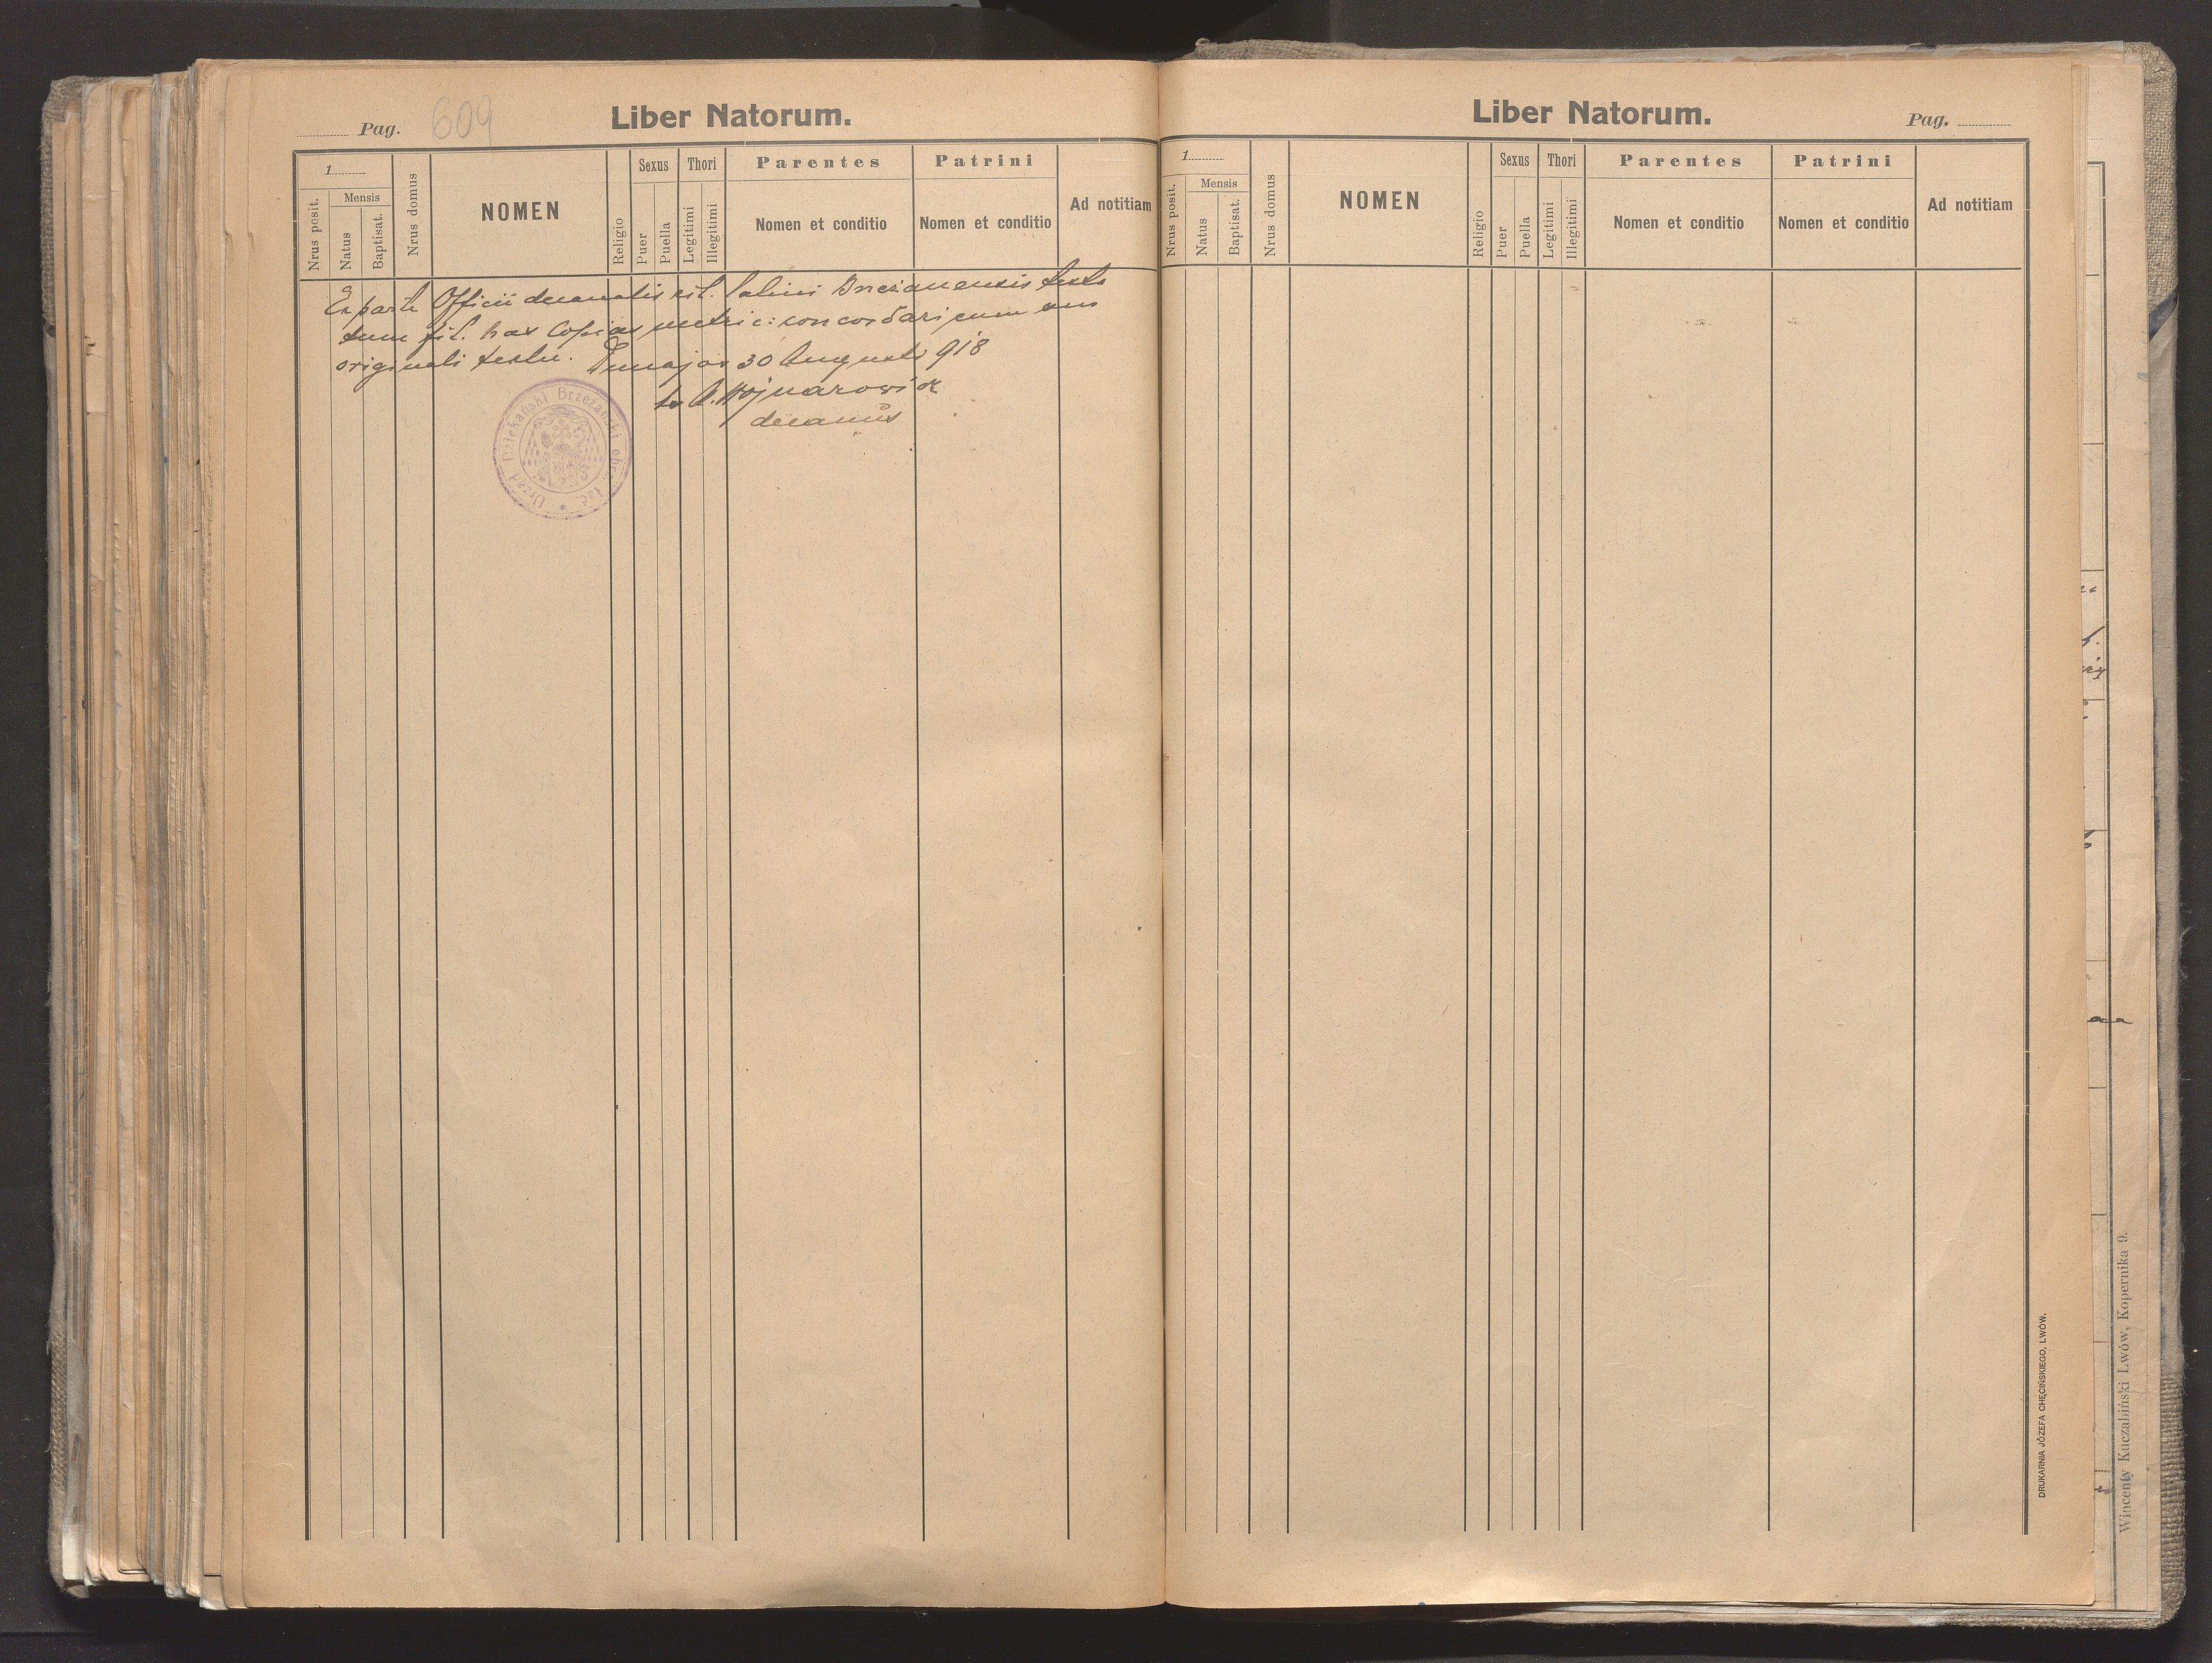 Pag. 609
Liber Natorum.
1
Nrus posit.
Mensis
Natus
Baptisat.
Nrus domus
NOMEN
Religio
Sexus
Puer
Puella
Thori
Legitimi
Illegitimi
Parentes
Nomen et conditio
Patrini
Nomen et conditio
Ad notitiam
Ex parte Officii decanalis rit. latini Brzeżanensis testa
tum fit. has Copias metric: concordari cum suo
originali textu. Dunajów 30 Augusti 918
A. Wojnarowicz
decanus
Urząd Dziekański Brzeżański obrz. łać. *
Liber Natorum.
Pag.
1
Nrus posit.
Mensis
Natus
Baptisat.
Nrus domus
NOMEN
Religio
Sexus
Puer
Puella
Thori
Legitimi
Illegitimi
Parentes
Nomen et conditio
Patrini
Nomen et conditio
Ad notitiam
DRUKARNIA JÓZEFA CHĘCIŃSKIEGO, LWÓW.
Wincenty Kuczabiński Lwów, Kopernika 9.